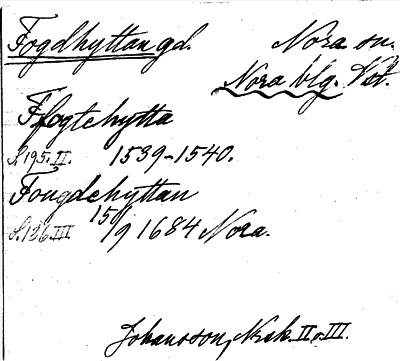 Fogdhyttan gd. Nora sn.
Nora blg. Vstm.
Ffogtehytta
S. 195. II. 1539-1540.
Fougdehyttan
S. 136 III 15/9 1684 Nora.
Johansson, Norask. II o. III.